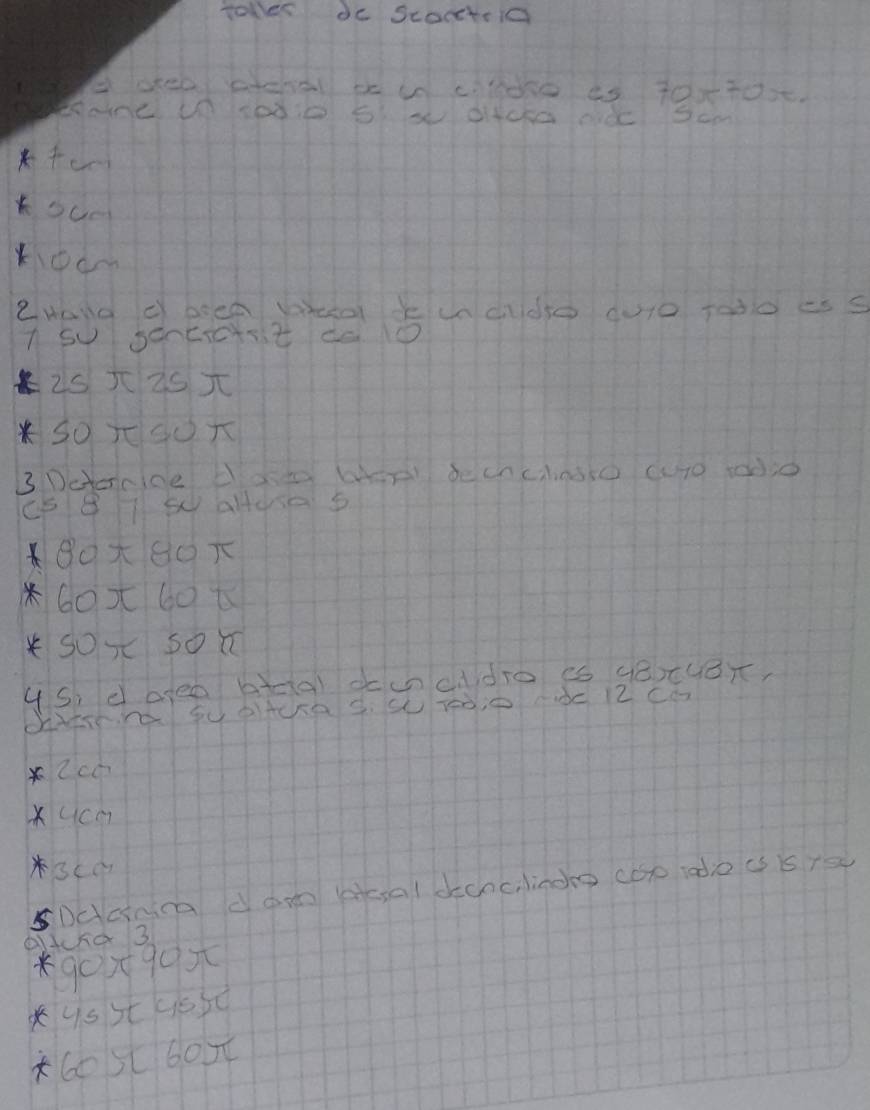 taller de Geometria
area lateral de un cilindro es 70π70π.
un radio si su altura mide 5cm
* 7cm
* 5cm
* 10cm
2 Halla el area lateral de un cilidro cuyo radio es 5
y su generatriz es 10
* 25 π 25 π
* 50 π 50 π
3 Determine el area lateral de un cilindro cuyo radio
es 8 y su altura 5
* 80 π 80 π
* 60 π 60 π
* 50 π 50 π
4 Si el area lateral de un cilidro es 48π48π,
determina su altura si su radio mide 12 cm
* 2cm
* 4cm
* 3cm
5 Determina el area lateral de un cilindro cuyo radio es 15 y su
altura 3
* 90π90π
* 45π 45π
* 60π 60π